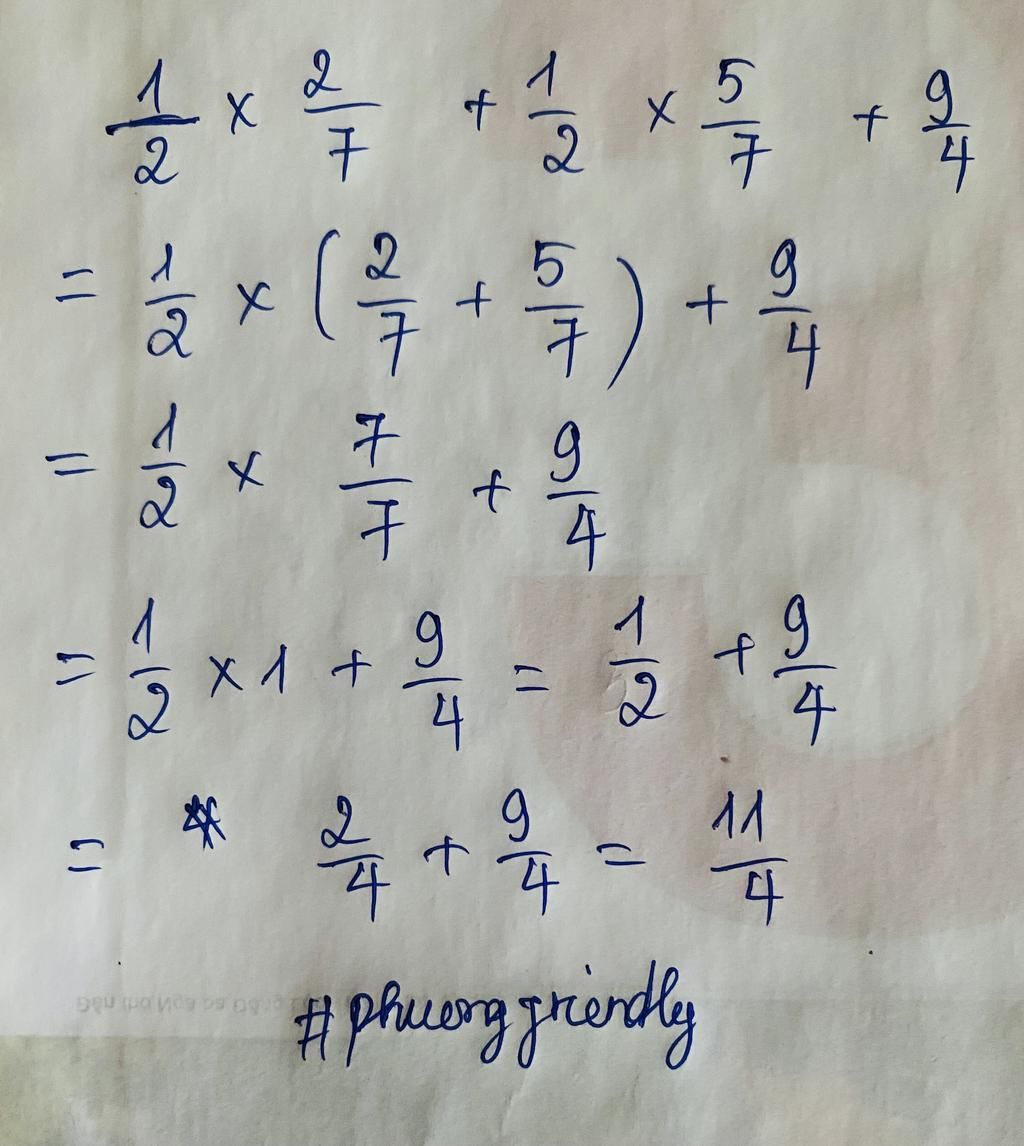 1/2 × 2/7 + 1/2 × 5/7 + 9/4
= 1/2 × (2/7 + 5/7) + 9/4
= 1/2 × 7/7 + 9/4
= 1/2 × 1 + 9/4 = 1/2 + 9/4
= 2/4 + 9/4 = 11/4
#phuongfriendly